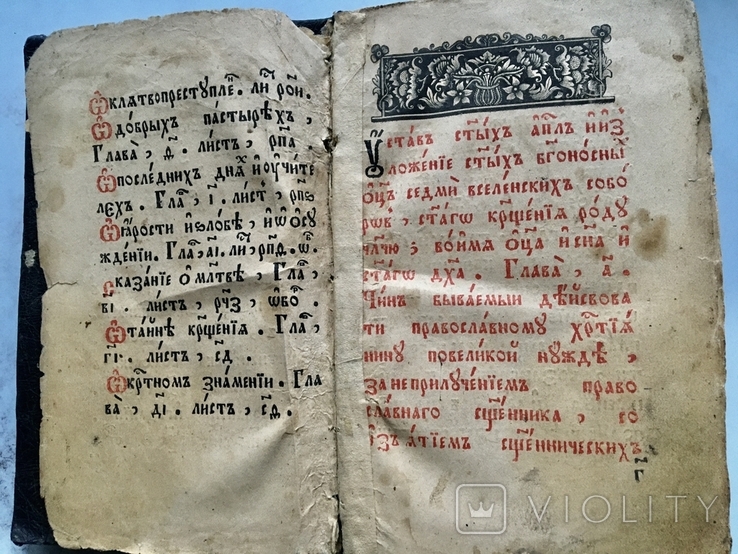 Ѽклѧтвопрестꙋпле҇. ли҇ рои҃.
Ѽдобрыхъ пастырѣхъ,
Глава̀, д҃. листъ, рп҃а.
Ѽпослѣднихъ днѧ҇ и҆ᲂучи́те
лехъ. Гла҇, і҃. листъ,
Ѽꙗрости и҆ѕлобѣ, и҆ѡ҆сꙋ
ждении. Гла҇, а҃і. ли҇,
Сказанїе ѡ҆млтвѣ, Гла҇,
в҃і. листъ, рч҃з,
Ѽтайнѣ крⷭ҇щенїѧ. Гла҇,
г҃і. листъ, с҃д.
Ѽкрⷭ҇тномъ знаменїи. Гла
ва̀, д҃і. листъ,
Ѹставъ ст҃ыхъ а҆пⷭ҇лъ и҆и҆з
ложенїе ст҃ыхъ бг҃оносны҇
ѻ҆ц҃ъ седми̑ вселенскихъ собо
рѡвъ, ст҃агѡ крⷭ҇щенїѧ ро́дꙋ
чл҃чю, во́имѧ ѻ҆ц҃а и҆сн҃а и҆
ст҃агѡ дх҃а. Глава̀, а҃.
Чи́нъ быва́емый дѣ́йсвова
ти православномꙋ хрⷭ҇тїѧ
нинꙋ повели́кой нꙋждѣ,
за неприлꙋче́нїемъ право
сла́внаго сщ҃е́нника, со
и҆з̾ѧ́тїемъ сщ҃е́нническихъ
г҃
VIOLITY